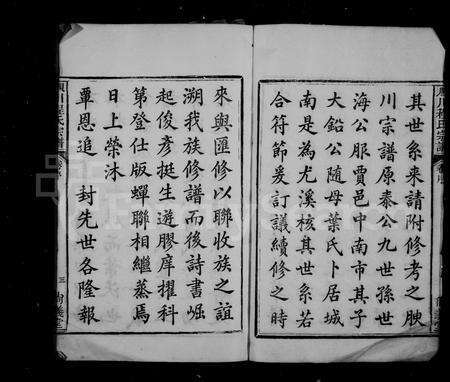 其世系來請附修考之腴
川宗譜原泰公九世孫世
海公服賈邑中南市其子
大鉛公隨母葉氏卜居城
南是為尤溪核其世系若
合符節爰訂議續修之時
來與匯修以聯收族之誼
溯我族修譜而後詩書崛
起俊彥挺生遊膠庠擢科
第登仕版蟬聯相繼蒸焉
日上榮沐
覃恩追 封先世各隆報
川程氏宗譜
三